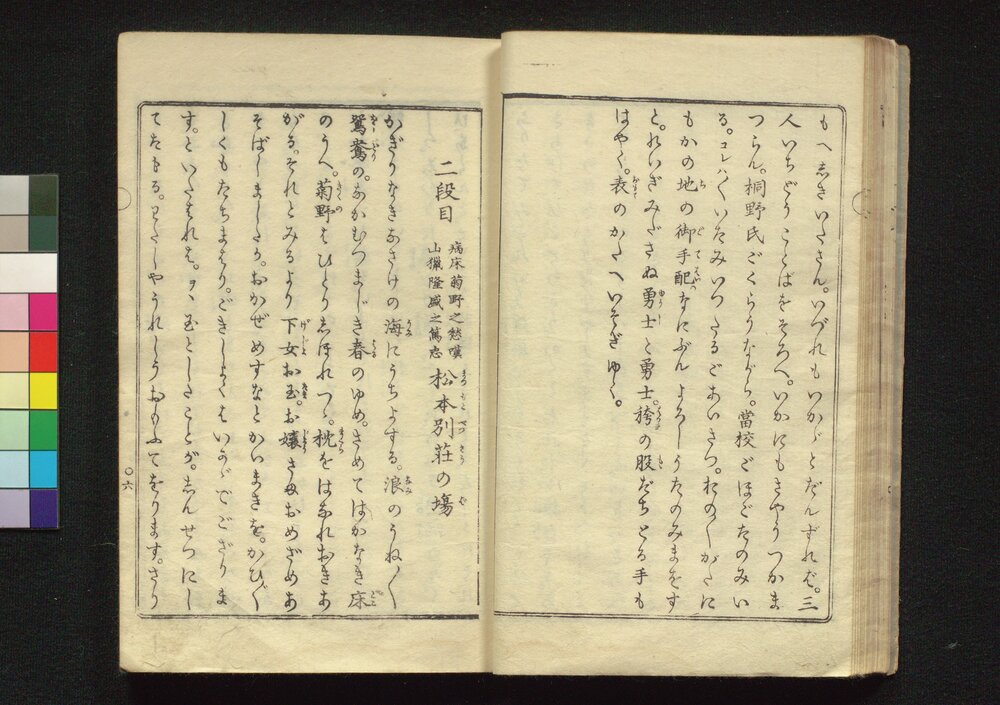 もへしきいたさん。いづれもいかゞとだんずれば。三
人いちどうことばをそろへ。いかにもさやうつかま
つらん。桐野氏ごくらうながら。當校ごほごたのみい
る。コレハ〳〵いたみいつたるごあいさつ。おの〳〵がたに
もかの地の御手配なにぶんよろしうたのみまをす
と。れいぎみださぬ勇士と勇士。袴の股だちとる手も
はやく。表のかたへいそぎゆく。
二段目
病床菊野之愁嘆
山獵隆盛之篤志
松本別荘の場
かぎりなきなさけの海にうちよする。浪のうね〳〵
鴛鴦の。なかむつまじき春のゆめ。さめてはかなき床
のうへ。菊野はひとりしほれつゝ。枕をはなれおきあ
がる。それとみるより下女お玉。お嬢さまおめざめあ
そばしましたか。おかぜめすなとかいまきを。かひ〴〵
しくもたちまはり。ごきしよくはいかゞでござりま
す。といたはれば。ヲヽ玉としたことが。しんせつにし
てたもる。わたしやうれしうおもふてをります。さり
〇六